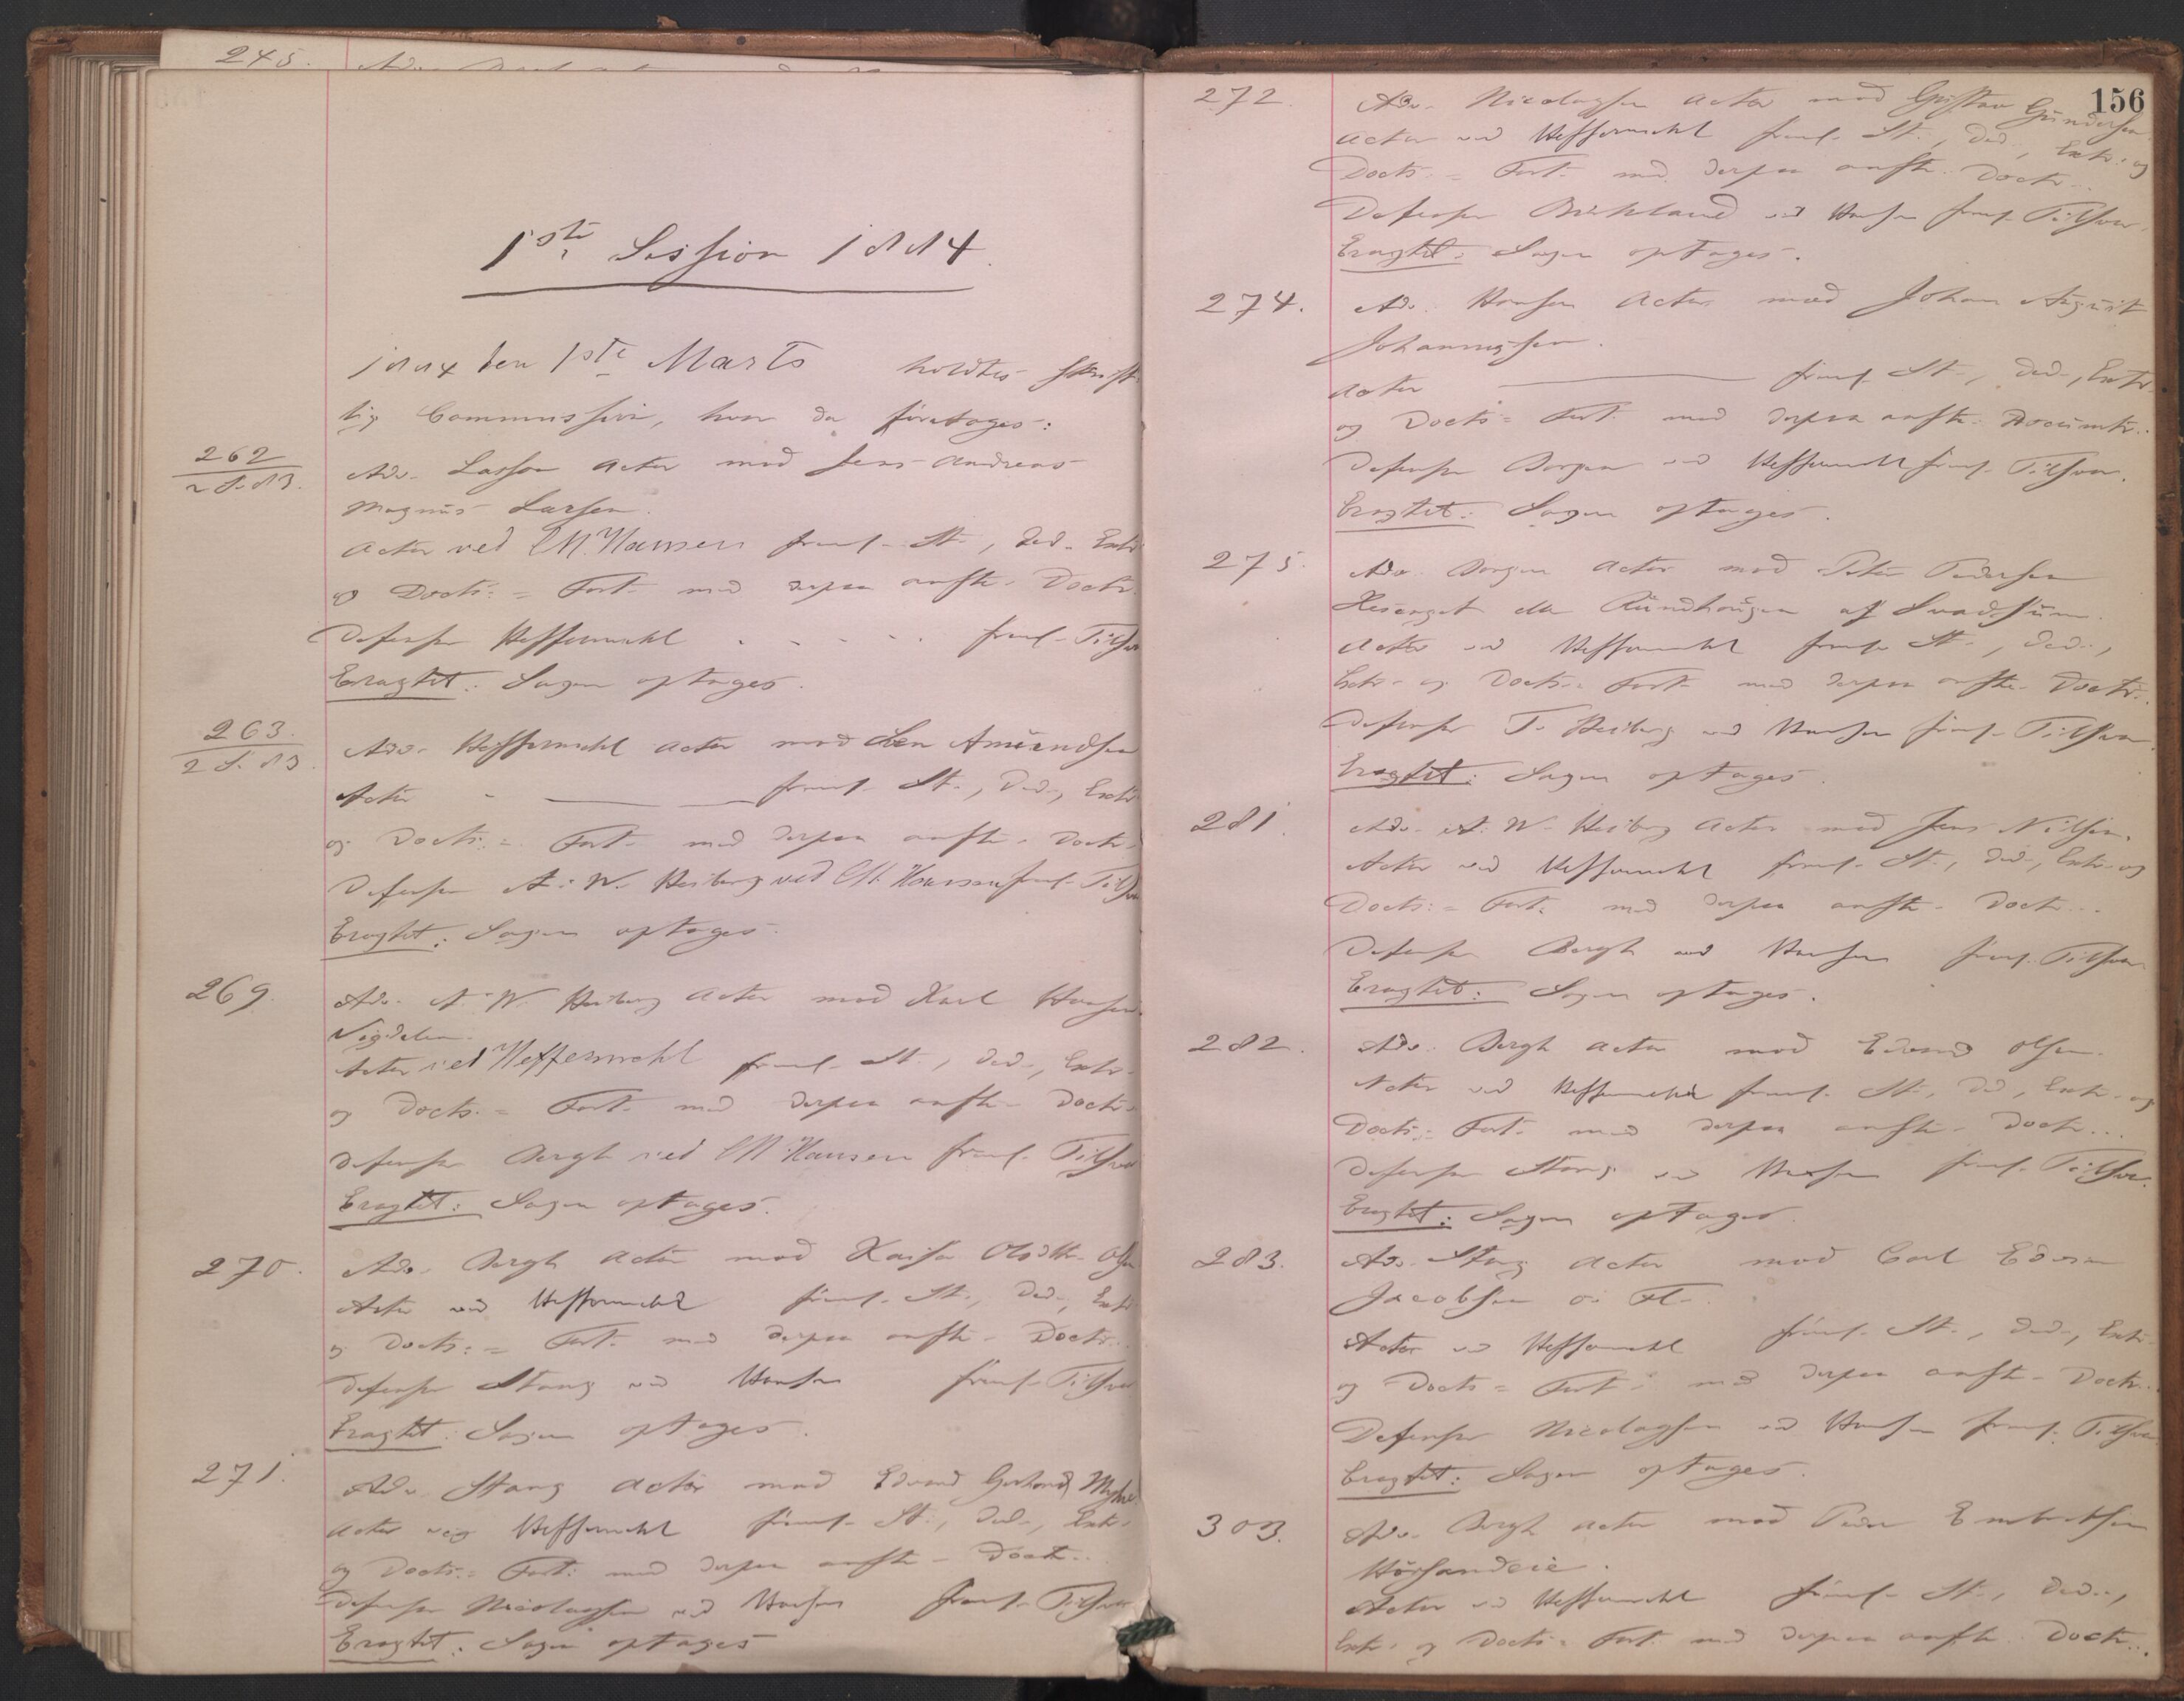 245.
1ste Session 1884.
1884 den 1ste Marts holdtes skrift-
lig Commission, hvor da foretoges:
262
2 S. 83.
Adv. Lasson Actor mod Jens Andreas
Magnus Larsen.
Actor ved CM. Hansen freml. St., Ded., Extr.
og Docts. = Fort. med derpaa anfte. Doctr.
Defensor Heffermehl . . . . freml. Tilsvar
Eragtet: Sagen optages.
263.
2 S. 83.
Adv. Heffermehl Actor mod Amundsen
Actor freml. St., Ded., Extr.
og Docts. = Fort. med derpaa anfte. Doctr.
Defensor A. W. Heiberg ved CM. Hansen freml. Tilsvar
Eragtet: Sagen optages.
269.
Adv. A. W. Heiberg Actor mod Karl Hansen
Actor ved Heffermehl freml. St., Ded., Extr.
og Docts. = Fort. med derpaa anfte. Doctr.
Defensor Bergh ved CM Hansen freml. Tilsvar
Eragtet: Sagen optages.
270.
Adv. Bergh Actor mod Kaisa Olsdtr. Olsen
Actor ved Heffermehl freml. St., Ded., Extr.
og Docts. = Fort. med derpaa anfte. Doctr.
Defensor Stang ved Hansen freml. Tilsvar
Eragtet: Sagen optages.
271.
Adv. Stang Actor mod Edvard Gerhard
Actor ved Heffermehl freml. St., Ded., Extr.
og Docts. = Fort. med derpaa anfte. Doctr.
Defensor Nicolaysen ved Hansen freml. Tilsvar
Eragtet: Sagen optages
156
272.
Adv. Nicolaysen Actor mod Gustav Gundersen
Actor ved Heffermehl freml. St., Ded., Extr. og
Docts. = Fort. med derpaa anfte. Doctr.
Defensor Birkeland ved Hansen freml. Tilsvar.
Eragtet: Sagen optages.
274.
Adv. Hansen Actor mod Johan August
Johannessen.
Actor freml. St., Ded., Extr.
og Docts. = Fort. med derpaa anfte. Documtr.
Defensor Borgen ved Heffermehl freml. Tilsvar.
Eragtet: Sagen optages.
275.
Adv. Borgen Actor mod Peter Pedersen
eller Rundhaugen af
Actor ved Heffermehl freml. St., Ded.,
Extr. og Docts. = Fort. med derpaa anfte. Doctr.
Defensor T. Heiberg ved Hansen freml. Tilsvar.
Eragtet: Sagen optages.
281.
Adv. A. W. Heiberg Actor mod Jens Nilsen.
Actor ved Heffermehl freml. St., Ded., Extr. og
Docts. = Fort. med derpaa anfte. Doctr.
Defensor Bergh ved Hansen freml. Tilsvar
Eragtet: Sagen optages.
282.
Adv. Bergh Actor mod Edvard Olsen.
Actor ved Heffermehl freml. St., Ded., Extr. og
Docts. = Fort. med derpaa anfte. Doctr.
Defensor Stang ved Hansen freml. Tilsvar.
Eragtet: Sagen optages.
283.
Adv. Stang Actor mod Carl Edvin
Jacobsen o. Fl.
Actor ved Heffermehl freml. St., Ded., Extr.
og Docts. = Fort. med derpaa anfte. Doctr.
Defensor Nicolaysen ved Hansen freml. Tilsvar
Eragtet: Sagen optages.
303.
Adv. Bergh Actor mod Peder Embretsen
Actor ved Heffermehl freml. St., Ded.,
Extr. og Docts. = Fort. med derpaa anfte. Doctr.